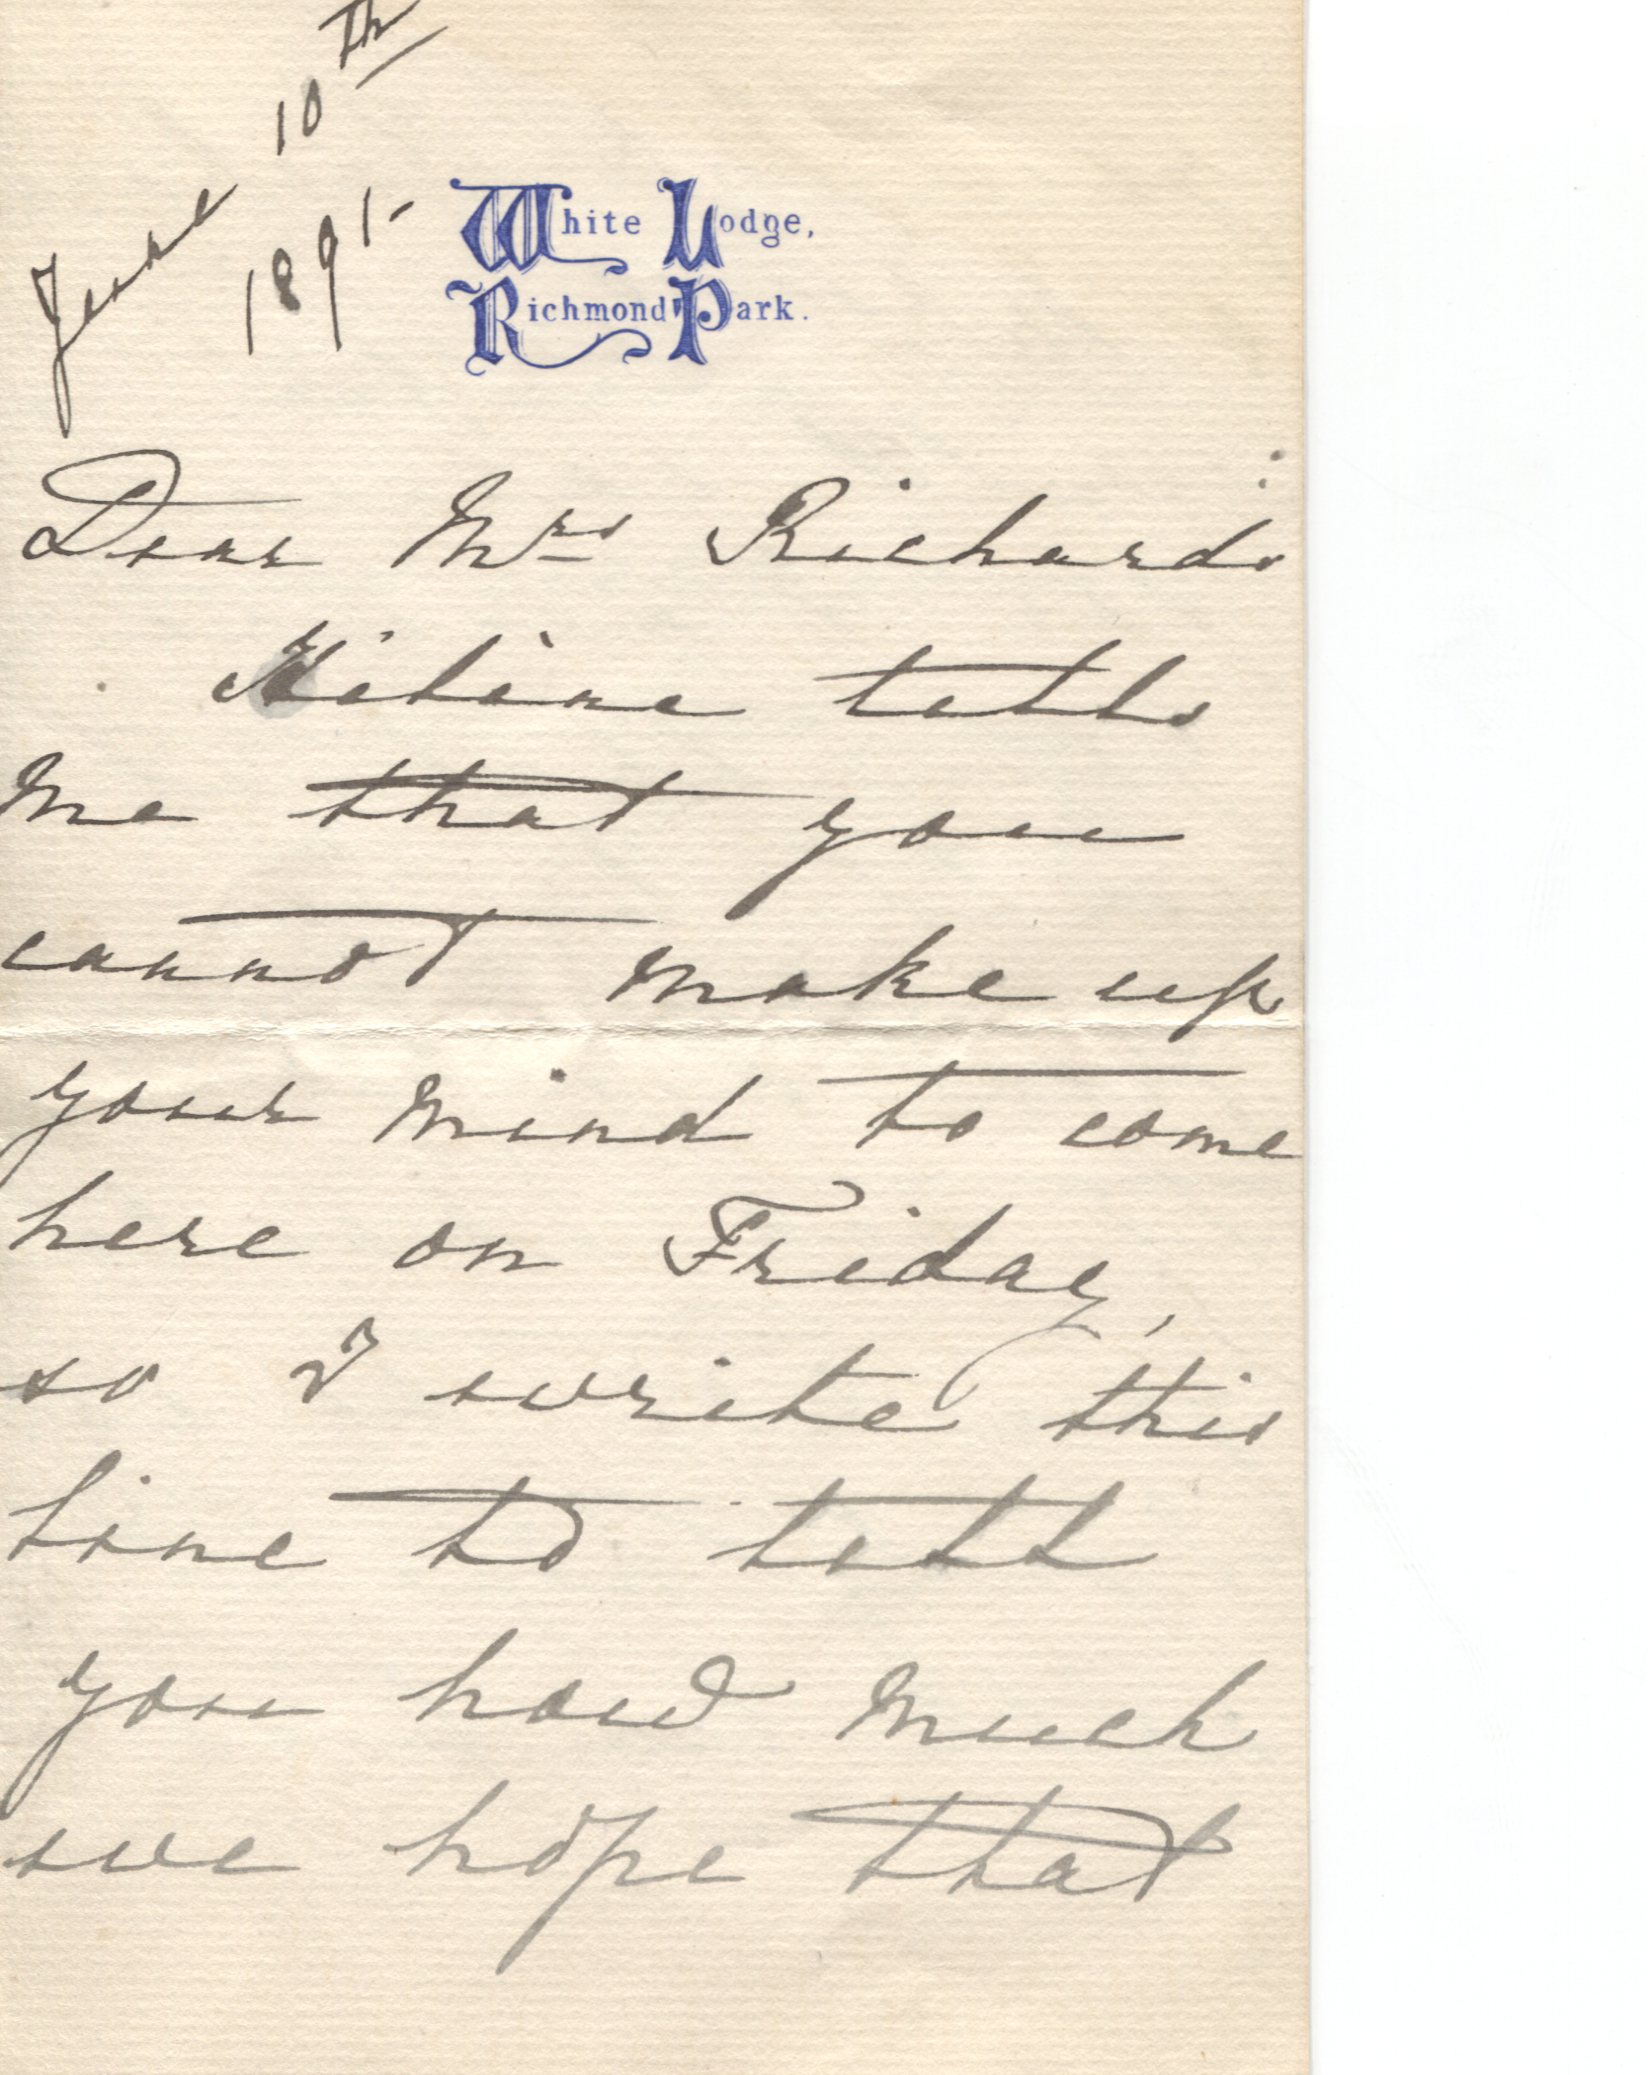 June 10th
1891-
White Lodge,
Richmond Park.
Dear Mrs Richards
tells
me that you
cannot make up
your mind to come
here on Friday,
so I write this
line to tell
you how much
we hope that